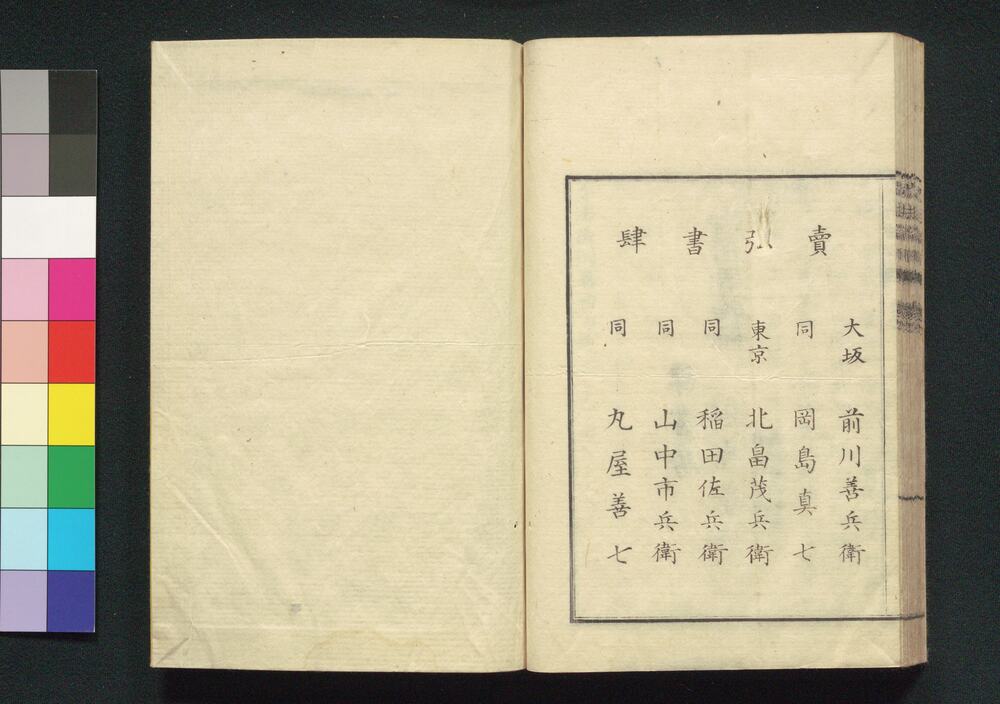 賣弘書肆
大坂 前川善兵衛
同 岡島真七
東京 北畠茂兵衛
同 稲田佐兵衛
同 山中市兵衛
同 丸屋善七